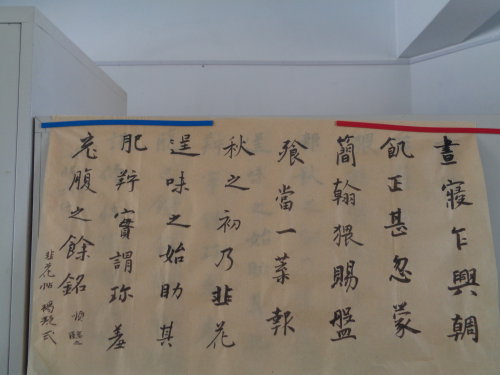 晝寢乍興輖
飢正甚忽蒙
簡翰猥賜盤
飧當一葉報
秋之初乃韭花
逞味之始助其
肥羜實謂珍羞
充腹之餘銘
韭花帖 楊凝式